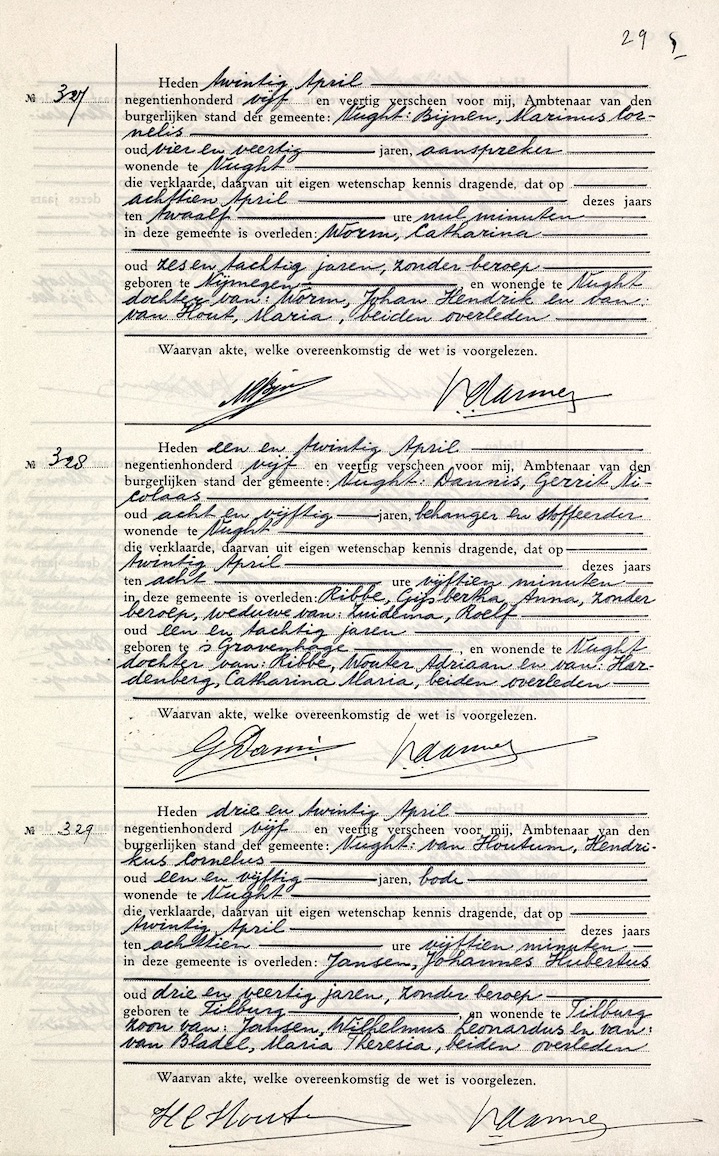 29
№ 327
Heden twintig April
negentienhonderd vijf en veertig verscheen voor mij, Ambtenaar van den
burgerlijken stand der gemeente: Vught: Bijnen, Marinus Cor-
nelis
oud vier en veertig jaren, aanspreker
wonende te Vught
die verklaarde, daarvan uit eigen wetenschap kennis dragende, dat op
achttien April dezes jaars
ten twaalf ure nul minuten
in deze gemeente is overleden: Worm, Catharina
oud zes en tachtig jaren, zonder beroep
geboren te Nijmegen, en wonende te Vught
dochter van: Worm, Johan Hendrik en van:
van Hout, Maria, beiden overleden
Waarvan akte, welke overeenkomstig de wet is voorgelezen.
№ 328
Heden een en twintig April
negentienhonderd vijf en veertig verscheen voor mij, Ambtenaar van den
burgerlijken stand der gemeente: Vught: Dannis, Gerrit Ni-
colaas
oud acht en vijftig jaren, behanger en stoffeerder
wonende te Vught
die verklaarde, daarvan uit eigen wetenschap kennis dragende, dat op
twintig April dezes jaars
ten acht ure vijftien minuten
in deze gemeente is overleden: Ribbe, Gijsbertha Anna, zonder
beroep, weduwe van: Zuidema, Roelf
oud een en tachtig jaren
geboren te 's Gravenhage, en wonende te Vught
dochter van: Ribbe, Wouter Adriaan en van: Har-
denberg, Catharina Maria, beiden overleden
Waarvan akte, welke overeenkomstig de wet is voorgelezen.
№ 329
Heden drie en twintig April
negentienhonderd vijf en veertig verscheen voor mij, Ambtenaar van den
burgerlijken stand der gemeente: Vught: van Houtum, Hendri-
kus Cornelus
oud een en vijftig jaren, bode
wonende te Vught
die verklaarde, daarvan uit eigen wetenschap kennis dragende, dat op
twintig April dezes jaars
ten achttien ure vijftien minuten
in deze gemeente is overleden: Jansen, Johannes Hubertus
oud drie en veertig jaren, zonder beroep
geboren te Tilburg, en wonende te Tilburg
zoon van: Jansen, Wilhelmus Leonardus en van:
van Bladel, Maria Theresia, beiden overleden
Waarvan akte, welke overeenkomstig de wet is voorgelezen.